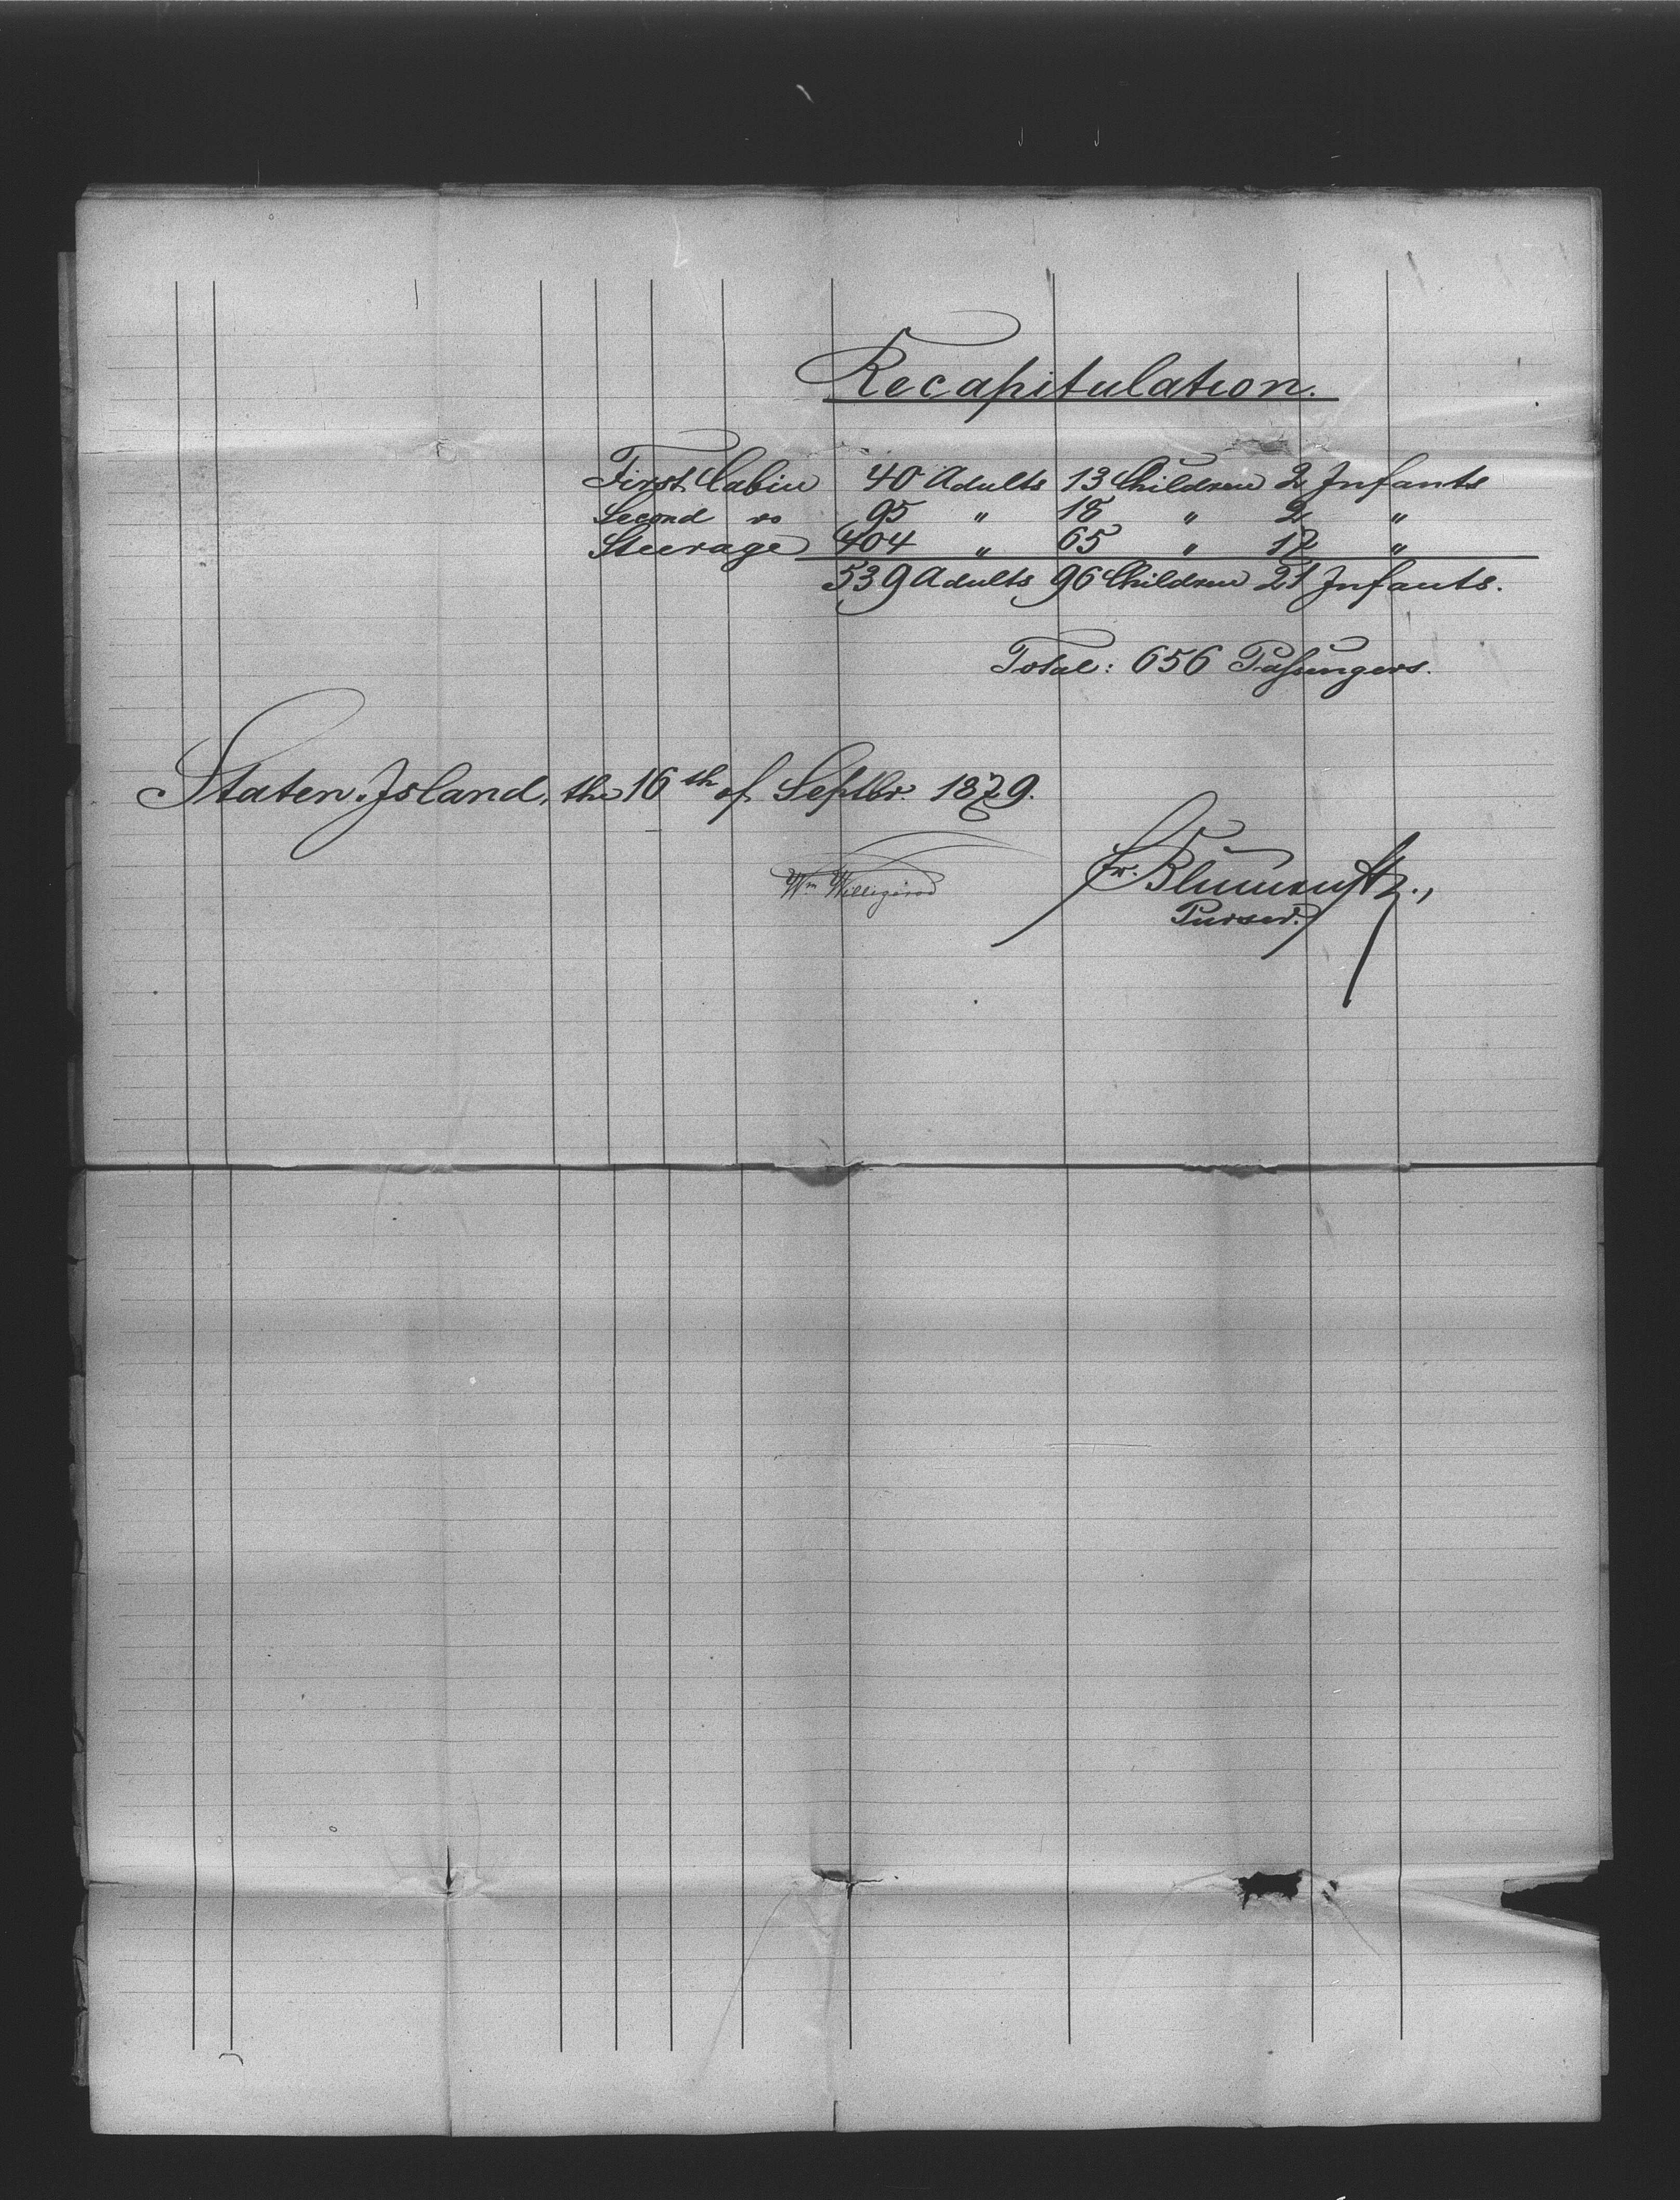 Recapitulation.
First Cabin 40 Adults 13 Children 2 Infants
Second do 95 " 18 " 2 "
Steerage 404 " 65 " 17 "
539 Adults 96 Children 21 Infants.
Total: 656 Passengers.
Staten Island, the 16th of Septbr. 1879.
Wm Willigerod
Fr.
Purser.